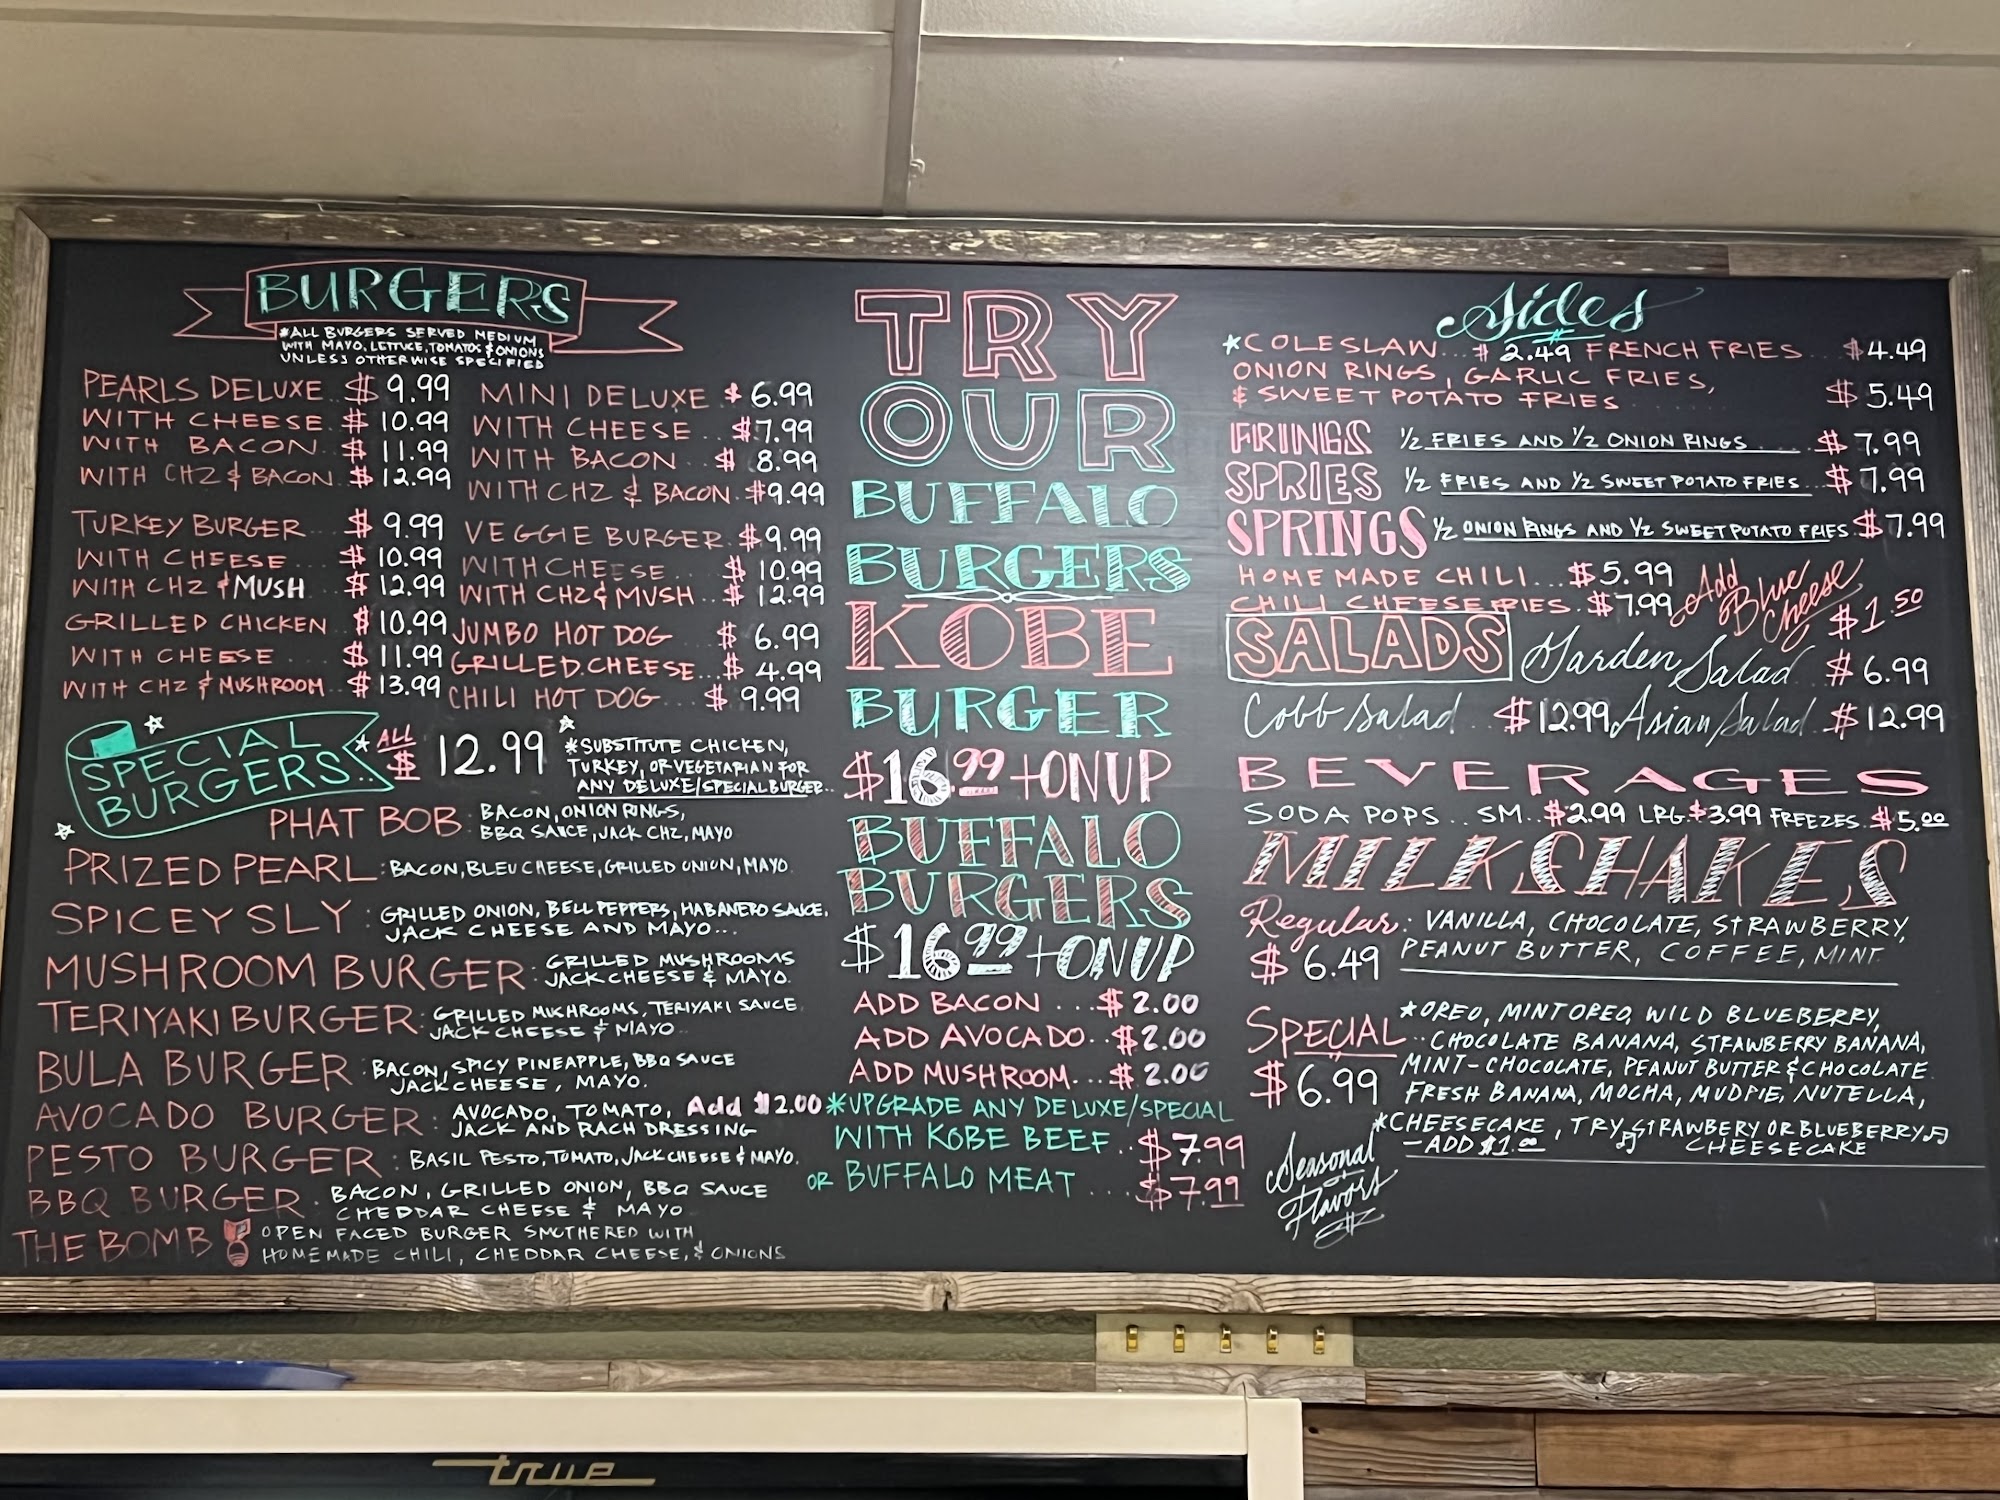 BURGERS
*ALL BURGERS SERVED MEDIUM
WITH MAYO, LETTUCE, TOMATOS & ONIONS
UNLESS OTHERWISE SPECIFIED
PEARLS DELUXE.. $ 9.99
WITH CHEESE.. $ 10.99
WITH BACON... $ 11.99
WITH CHZ & BACON.. $ 12.99
TURKEY BURGER... $ 9.99
WITH CHEESE.... $ 10.99
WITH CHZ & MUSH $ 12.99
GRILLED CHICKEN.. $10.99
WITH CHEESE.... $ 11.99
WITH CHZ & MUSHROOM.. $13.99
MINI DELUXE. $ 6.99
WITH CHEESE... $7.99
WITH BACON... $ 8.99
WITH CHZ & BACON. $9.99
VEGGIE BURGER. $9.99
WITH CHEESE.... $ 10.99
WITH CHZ & MUSH... $ 12.99
JUMBO HOT DOG... $ 6.99
GRILLED.CHEESE... $ 4.99
CHILI HOT DOG.... $ 9.99
SPECIAL
BURGERS..
*ALL
$ 12.99
*SUBSTITUTE CHICKEN,
TURKEY, OR VEGETARIAN FOR
ANY DELUXE/SPECIAL BURGER..
PHAT BOB: BACON, ONION RINGS,
BBQ SAUCE, JACK CHZ, MAYO
PRIZED PEARL: BACON, BLEU CHEESE, GRILLED ONION, MAYO.
SPICEY SLY: GRILLED ONION, BELL PEPPERS, HABANERO SAUCE,
JACK CHEESE AND MAYO...
MUSHROOM BURGER: GRILLED MUSHROOMS
JACK CHEESE & MAYO.
TERIYAKI BURGER: GRILLED MUSHROOMS, TERIYAKI SAUCE,
JACK CHEESE & MAYO..
BULA BURGER: BACON, SPICY PINEAPPLE, BBQ SAUCE
JACK CHEESE, MAYO.
AVOCADO BURGER: AVOCADO, TOMATO, Add $2.00
JACK AND RACH DRESSING
PESTO BURGER: BASIL PESTO, TOMATO, JACK CHEESE & MAYO.
BBQ BURGER: BACON, GRILLED ONION, BBQ SAUCE
CHEDDAR CHEESE & MAYO
THE BOMB OPEN FACED BURGER SMOTHERED WITH
HOMEMADE CHILI, CHEDDAR CHEESE, & ONIONS
TRY
OUR
BUFFALO
BURGERS
KOBE
BURGER
$16.99 + ON UP
BUFFALO
BURGERS
$16.99 + ON UP
ADD BACON ... $ 2.00
ADD AVOCADO.. $2.00
ADD MUSHROOM... $ 2.00
*UPGRADE ANY DELUXE/SPECIAL
WITH KOBE BEEF.. $7.99
OR BUFFALO MEAT .... $7.99
Sides
*COLESLAW... $ 2.49 FRENCH FRIES... $4.49
ONION RINGS, GARLIC FRIES,
& SWEET POTATO FRIES ..... $ 5.49
FRINGS 1/2 FRIES AND 1/2 ONION RINGS..... $ 7.99
SPRIES 1/2 FRIES AND 1/2 SWEET POTATO FRIES... $ 7.99
SPRINGS 1/2 ONION RINGS AND 1/2 SWEET POTATO FRIES. $7.99
HOME MADE CHILI... $5.99
CHILI CHEESE FRIES. $7.99
Add
Blue
Cheese
$1.50
SALADS
Garden Salad.. $ 6.99
Cobb Salad.. $12.99 Asian Salad.. $12.99
BEVERAGES
SODA POPS.. SM.. $2.99 LRG. $3.99 FREEZES. $5.00
MILKSHAKES
Regular: VANILLA, CHOCOLATE, STRAWBERRY,
$ 6.49 PEANUT BUTTER, COFFEE, MINT
SPECIAL..
$ 6.99
*OREO, MINT OREO, WILD BLUEBERRY,
CHOCOLATE BANANA, STRAWBERRY BANANA,
MINT-CHOCOLATE, PEANUT BUTTER & CHOCOLATE
FRESH BANANA, MOCHA, MUDPIE, NUTELLA,
*CHEESECAKE, TRY STRAWBERY OR BLUEBERRY
-ADD $1.00 CHEESECAKE
Seasonal
Flavors
true